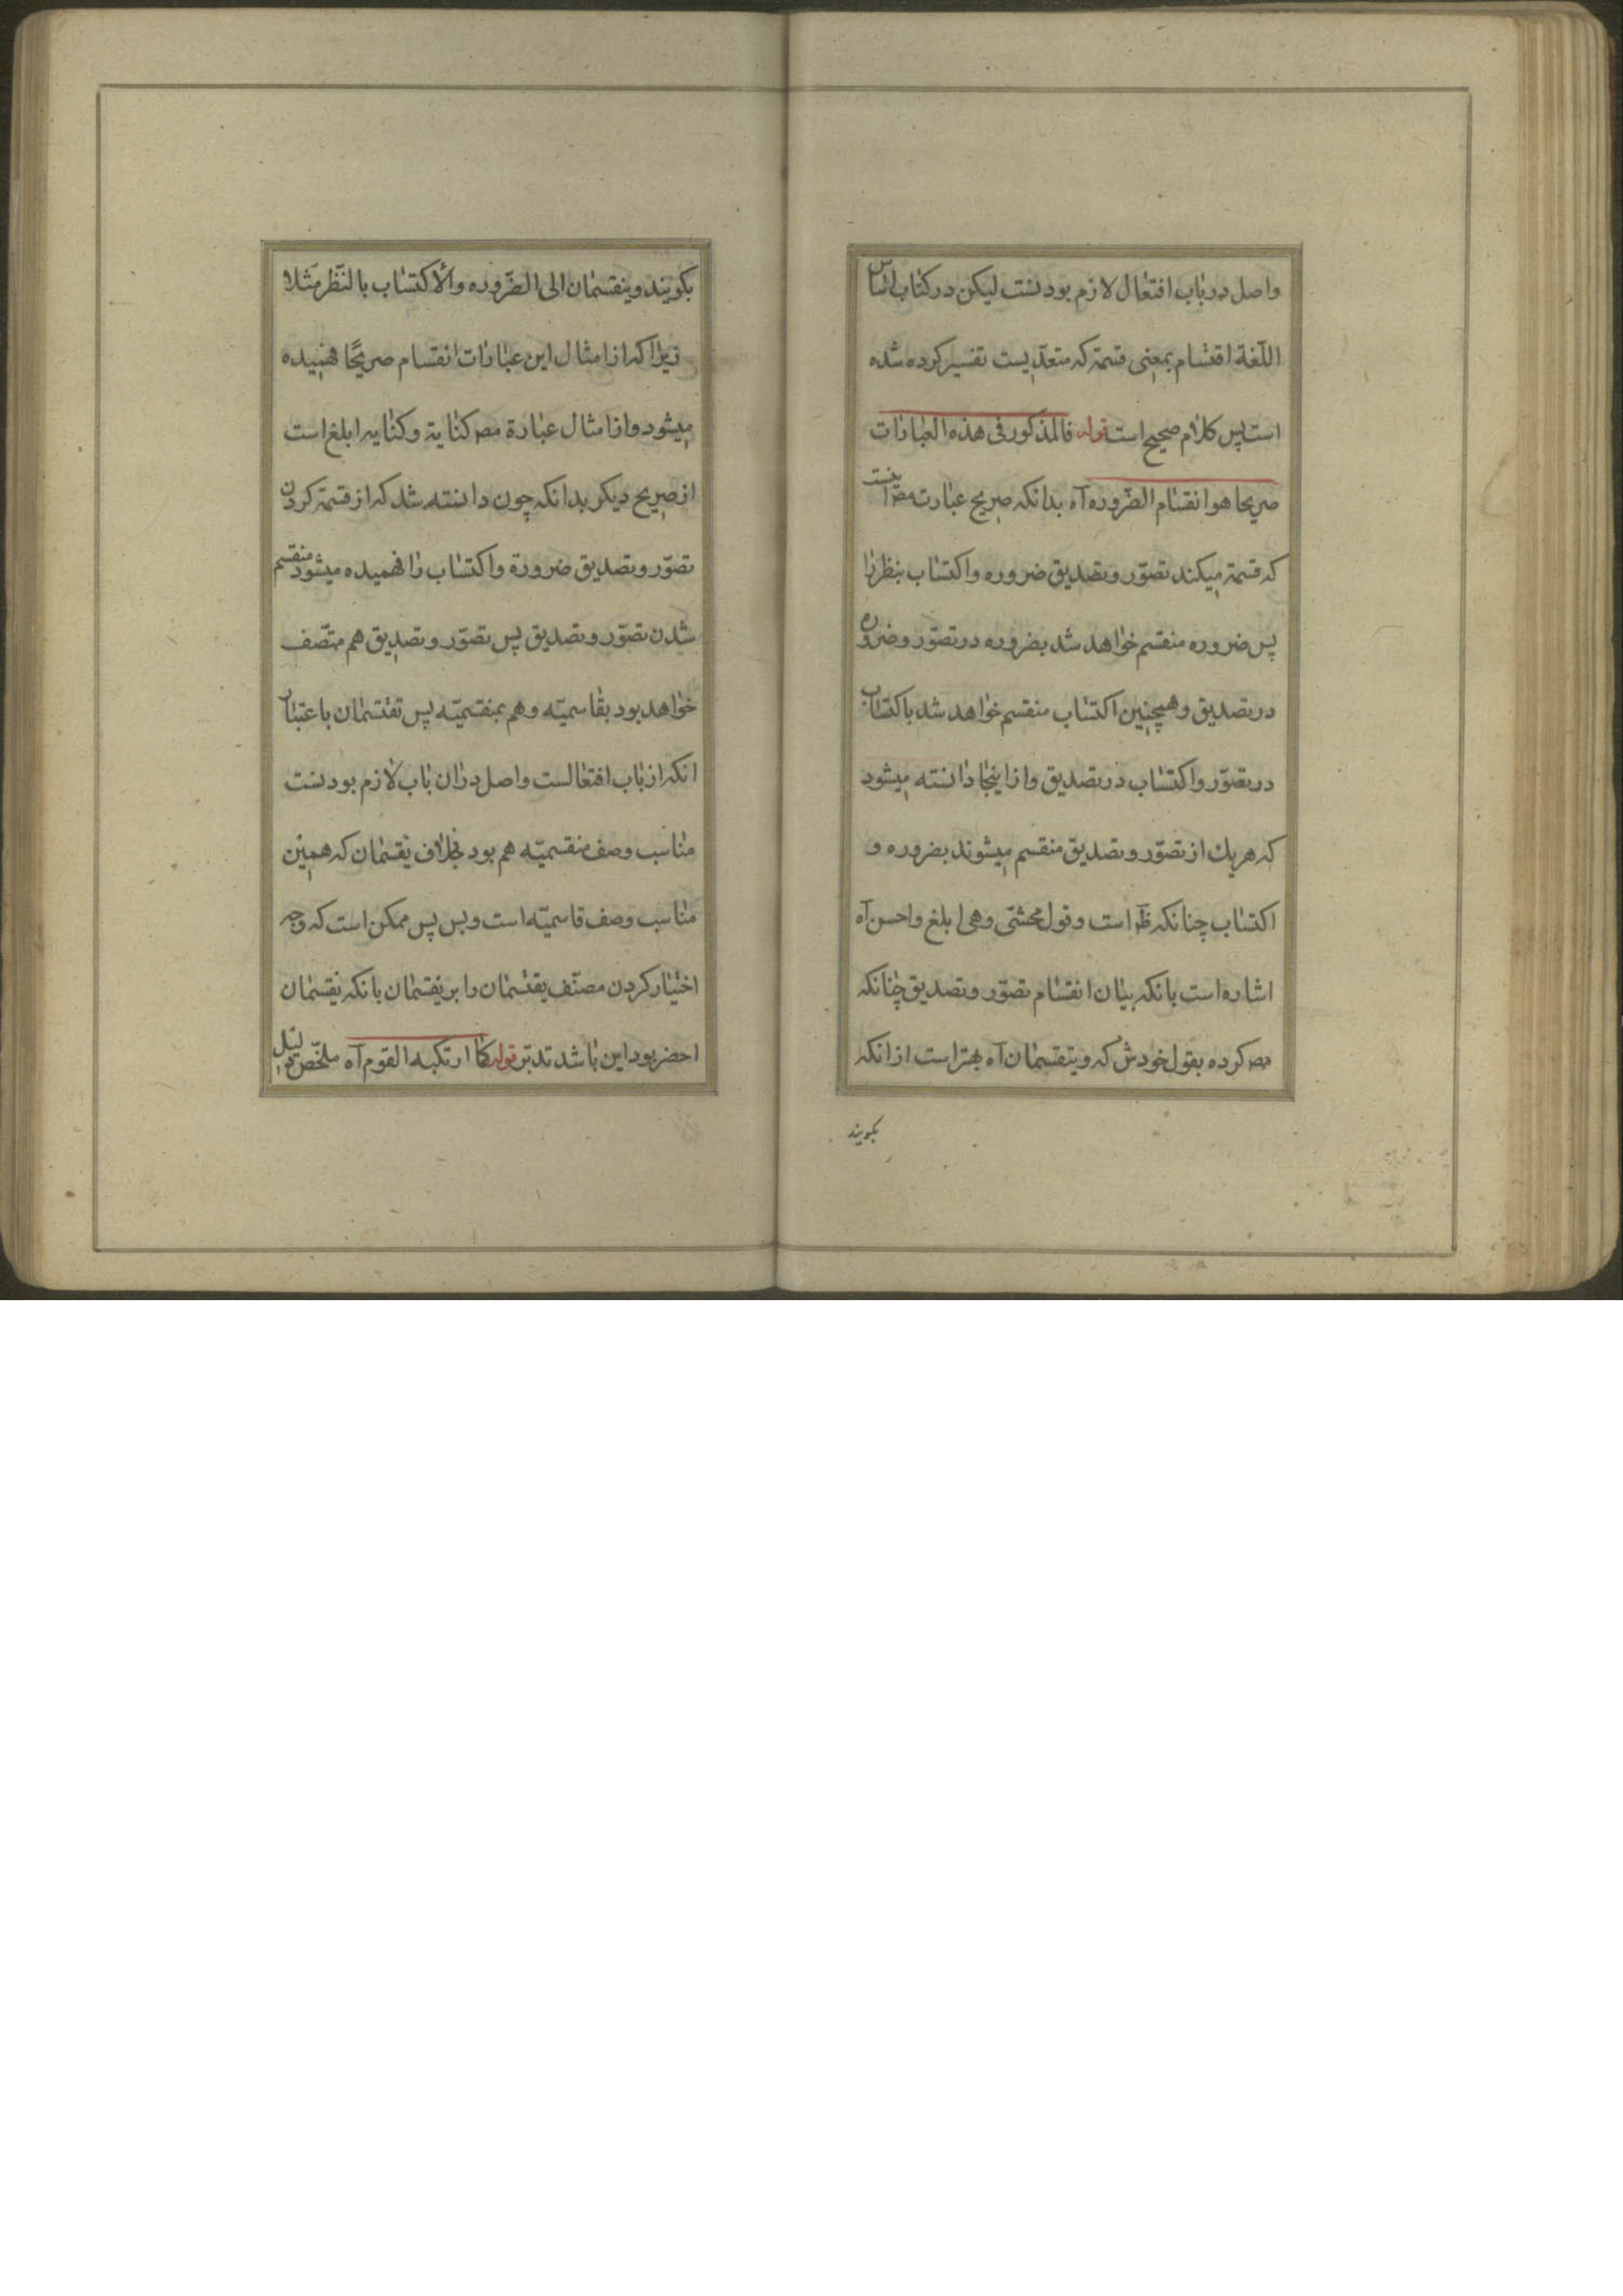 واصل در باب افتعال لازم بودنست لیکن در کتاب اساس
اللّغة اقتسام بمعنی قسمة که متعدّیست تفسیر کرده شده
است پس کلام صحیح است قوله فالمذکور فی هذه العبارات
صریحا هو انقسام الضّروره آه بدانکه صریح عبارت مصر اینست
که قسمة میکند تصوّر و تصدیق ضروره واکتساب بنظر را
پس ضروره منقسم خواهد شد بضروره در تصوّر و ضروره
در تصدیق و همچنین اکتساب منقسم خواهد شد باکتساب
در تصوّر واکتساب در تصدیق و از اینجا دانسته میشود
که هریك از تصوّر و تصدیق منقسم میشوند بضروره و
اکتساب چنانکه ظ است و قول محشّی وهی ابلغ واحسن آه
اشاره است بانکه بیان انقسام تصوّر و تصدیق چنانکه
مصر کرده بقول خودش که ویتقسمان آه بهتر است از انکه
بگویند
بکویند وینقسمان الی الضّروره والاکتساب بالنّظر مثلا
زیرا که از امثال این عبارات انقسام صریحًا فهمیده
میشود و از امثال عبارة مصر کنایة و کنایه ابلغ است
از صریح دیکر بدانکه چون دانسته شد که از قسمة کردن
تصوّر و تصدیق ضرورة واکتساب را فهمیده میشود منقسم
شدن تصوّر و تصدیق پس تصوّر و تصدیق هم متّصف
خواهد بود بقاسمیّه و هم بمنقسمیّه پس تقتسمان باعتبار
انکه از باب افتعالست واصل دران باب لازم بودنست
مناسب وصف منقسمیّه هم بود بخلاف یقسمان که همین
مناسب وصف قاسمیّه است و بس پس ممکن است که وجه
اختیار کردن مصنّف یقتسمان را بر یقسمان بانکه یقسمان
اخصر بود این باشد تدبّر قوله کما ارتکبه القوم آه ملخّص دلیل